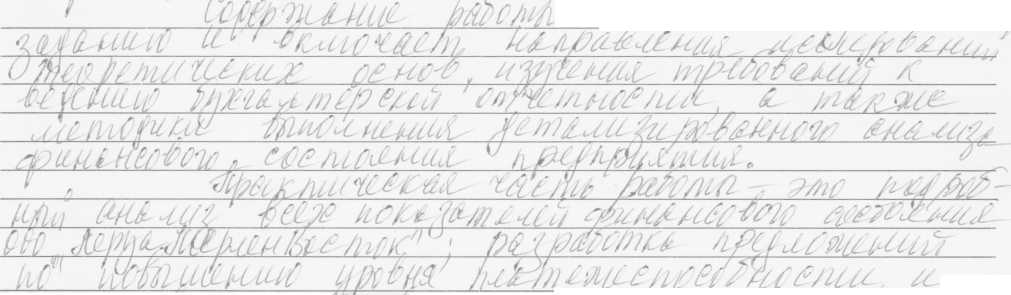 Содержание работы
заданию и включает направления исследований
теоретических основ, изучения требований к
ведению бухгалтерской отчетности, а также
методики выполнения детализированного анализа
финансового состояния предприятия.
Практическая часть работы - это подроб-
ный анализ всех показателей финансового состояния
ООО
разработка предложений
по повышению уровня платежеспособности и